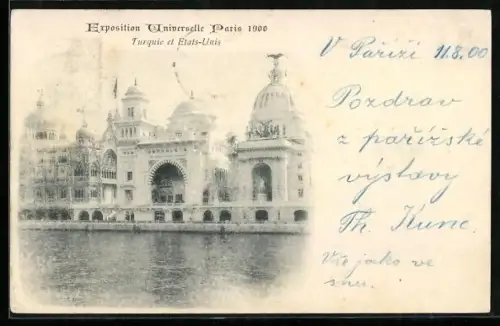 Exposition Universelle Paris 1900
Turquie et Etats-Unis
V Paříži 11.8.00
Pozdrav
z pařížské
výstavy
Th. Kunc.
Vše jako ve
snu.